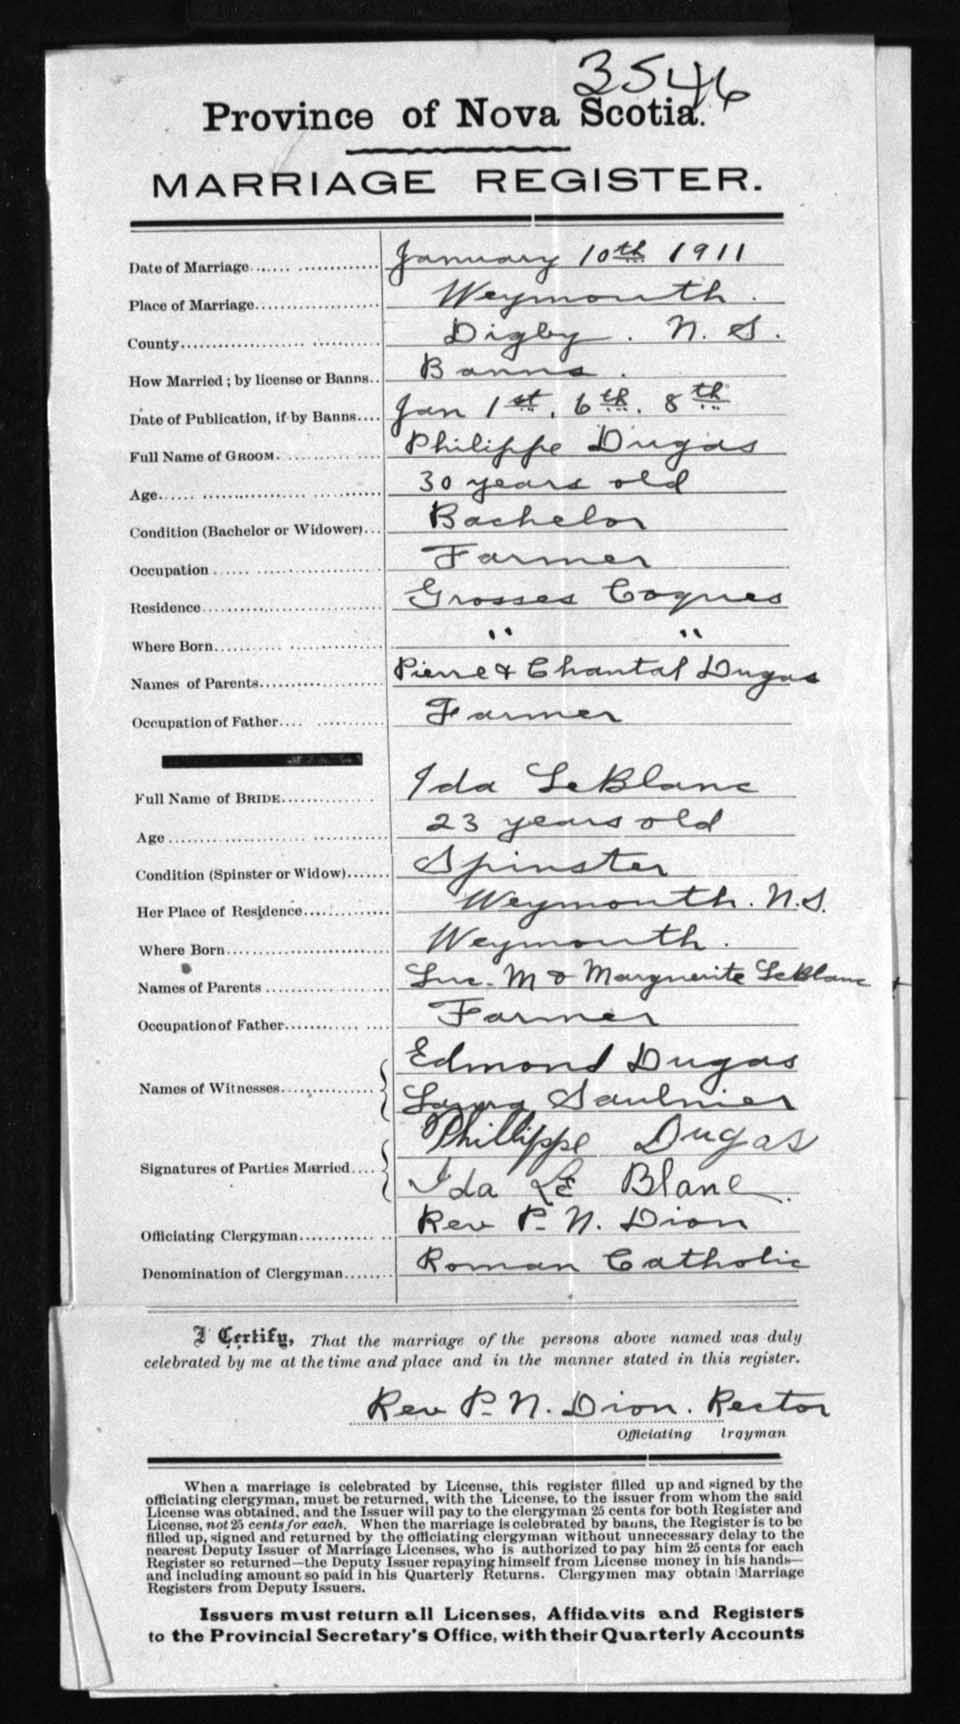 3546
Province of Nova Scotia.
MARRIAGE REGISTER.
Date of Marriage................ January 10th 1911
Place of Marriage................ Weymouth.
County................ Digby. N. S.
How Married; by license or Banns.. Banns.
Date of Publication, if by Banns.... Jan 1st, 6th. 8th
Full Name of GROOM................ Philippe Dugas
Age................ 30 years old
Condition (Bachelor or Widower)... Bachelor
Occupation................ Farmer
Residence................ Grosses Coques
Where Born................ " "
Names of Parents................ Pierre & Chantal Dugas
Occupation of Father................ Farmer
Full Name of BRIDE................ Ida LeBlanc
Age................ 23 years old
Condition (Spinster or Widow)....... Spinster
Her Place of Residence................ Weymouth. N.S.
Where Born................ Weymouth.
Names of Parents................ Luc. M & Marguerite LeBlanc
Occupation of Father................ Farmer
Edmond Dugas
Names of Witnesses................
Saulnier
Phillippe Dugas
Signatures of Parties Married....
Ida LE Blanc.
Officiating Clergyman................ Rev P. N. Dion
Denomination of Clergyman........ Roman Catholic
I Certify, That the marriage of the persons above named was duly
celebrated by me at the time and place and in the manner stated in this register.
Rev P. N. Dion. Rector
Officiating lrgyman
When a marriage is celebrated by License, this register filled up and signed by the
officiating clergyman, must be returned, with the License, to the issuer from whom the said
License was obtained, and the Issuer will pay to the clergyman 25 cents for both Register and
License, not 25 cents for each. When the marriage is celebrated by banns, the Register is to be
filled up, signed and returned by the officiating clergyman without unnecessary delay to the
nearest Deputy Issuer of Marriage Licenses, who is authorized to pay him 25 cents for each
Register so returned—the Deputy Issuer repaying himself from License money in his hands—
and including amount so paid in his Quarterly Returns. Clergymen may obtain Marriage
Registers from Deputy Issuers.
Issuers must return all Licenses, Affidavits and Registers
to the Provincial Secretary's Office, with their Quarterly Accounts